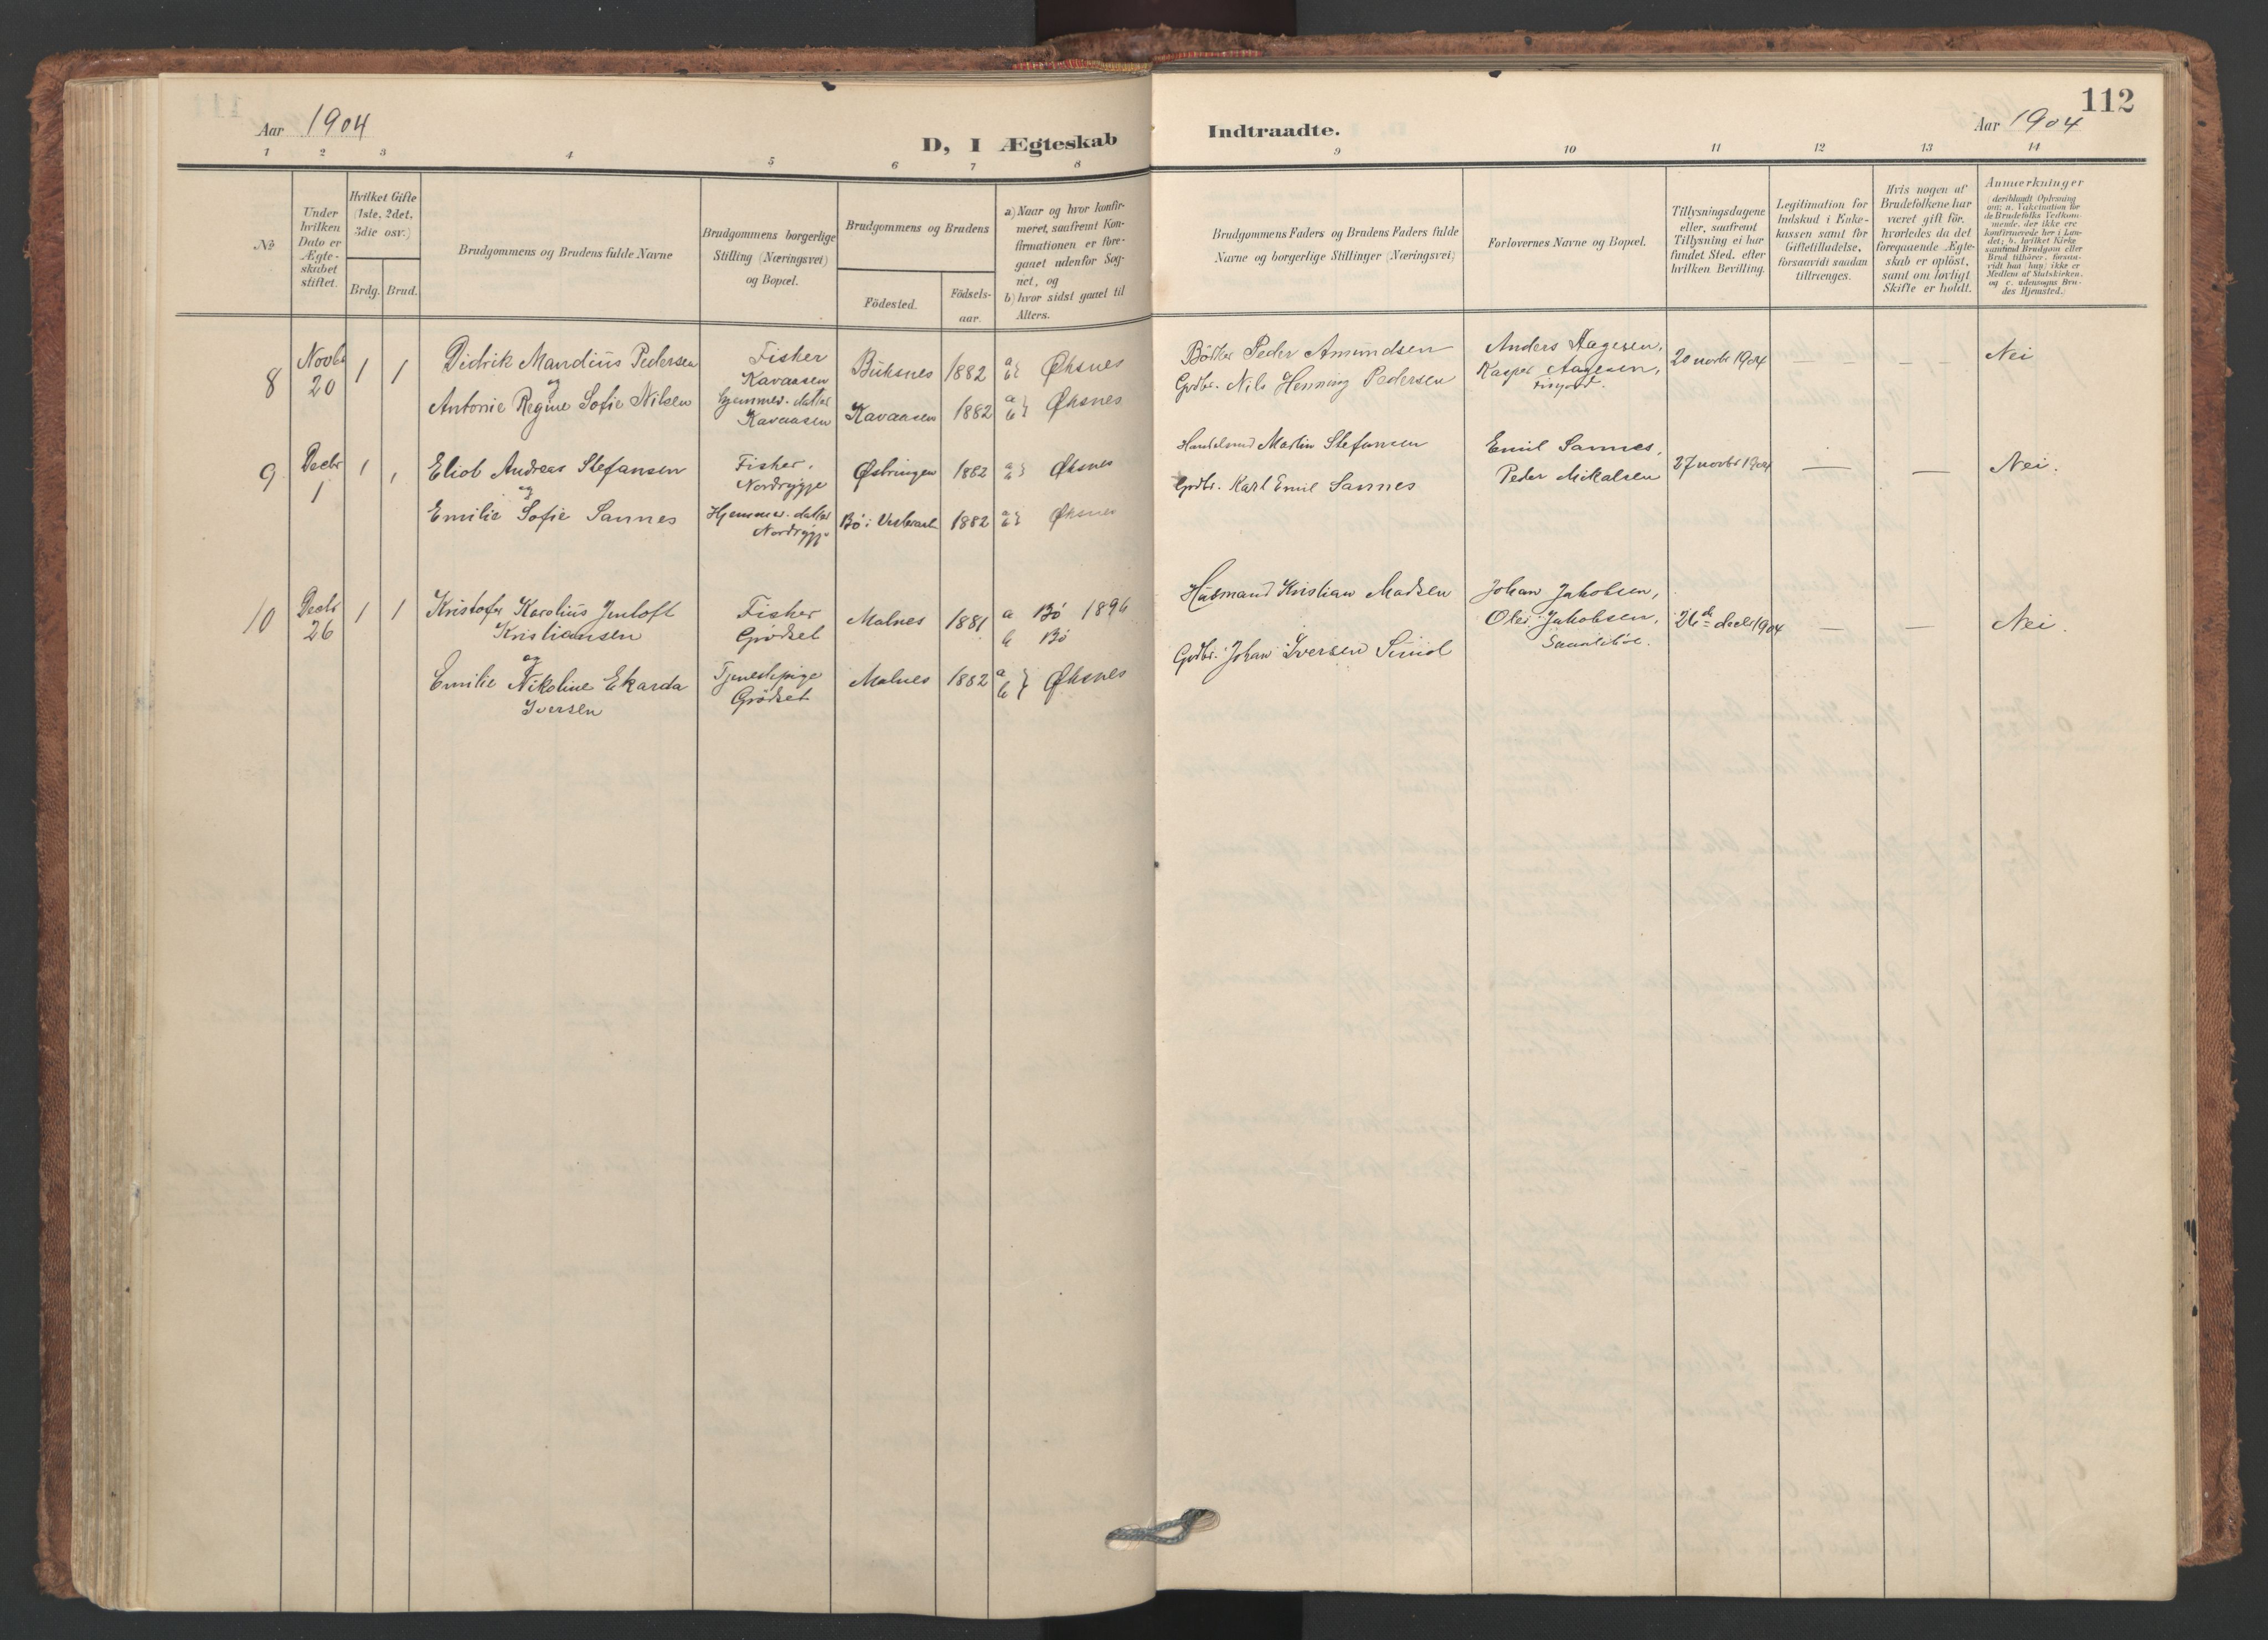 Aar 1904
D, I Ægteskab
Indtraadte.
Aar 1904
112
1 2 3 4 5 6 7 8 9 10 11 12 13 14
№
Under
hvilken
Dato er
Ægte-
skabet
stiftet.
Hvilket Gifte
(1ste, 2det,
3die osv.)
Brdg.
Brud.
Brudgommens og Brudens fulde Navne
Brudgommens borgerlige
Stilling (Næringsvei)
og Bopæl.
Brudgommens og Brudens
Födested.
Födsels-
aar.
a) Naar og hvor konfir-
meret, saafremt Kon-
firmationen er fore-
gaaet udenfor Sog-
net, og
b) hvor sidst gaaet til
Alters.
Brudgommens Faders og Brudens Faders fulde
Navne og borgerlige Stillinger (Næringsvei)
Forlovernes Navne og Bopæl.
Tillysningsdagene
eller, saafremt
Tillysning ei har
fundet Sted, efter
hvilken Bevilling.
Legitimation for
Indskud i Enke-
kassen samt for
Giftetilladelse,
forsaavidt saadan
tiltrænges.
Hvis nogen af
Brudefolkene har
været gift för,
hvorledes da det
foregaaende Ægte-
skab er oplöst,
samt om lovligt
Skifte er holdt.
Anmerkninger
(deriblandt Oplysning
om: a. Vakcination for
de Brudefolks Vedkom-
mende, der ikke ere
konfirmerede her i Lan-
det; b. hvilket Kirke-
samfund Brudgom eller
Brud tilhörer, forsaa-
vidt han (hun) ikke er
Medlem af Statskirken,
og c. udensogns Bru-
des Hjemsted.)
8
Novbr
20
1 1
Didrik Mandius Pedersen
og
Antonie Regine Sofie Nilsen
Fisker
Kavaasen
hjemmev. datter
Kavaasen
Buksnes 1882 a b } Øksnes
Kavaasen 1882 a b } Øksnes
Bödker Peder Amundsen
Grdbr. Nils Henning Pedersen
Anders Aagesen,
Kasper Aagesen,
20 novbr 1904
— — —
Nei
9
Decbr
1
1 1
Eliob Andreas Stefansen
og
Emilie Sofie Sannes
Fisker,
Nordrygge
Hjemmev. datter
Nordrygge
Østringen 1882 a b } Øksnes
Bö i Vesteraalen 1882 a b } Øksnes
Handelsmd Martin Stefansen
Grdbr. Karl Emil Sannes
Emil Sannes,
Peder Mikalsen
27 novbr 1904
— —
Nei.
10
Decbr
26
1 1
Kristofer Karolius Jentoft
Kristiansen
og
Emilie Nikoline Ekarda
Iversen
Fisker
Grödset
Tjenestepige
Grödset
Malnes 1881 a Bö 1896
b Bö
Malnes 1882 a b } Øksnes
Husmand Kristian Madsen
Grdbr. Johan Iversen Smid
Johan Jakobsen,
Olei Jakobsen,
26de decbr 1904
— —
Nei.